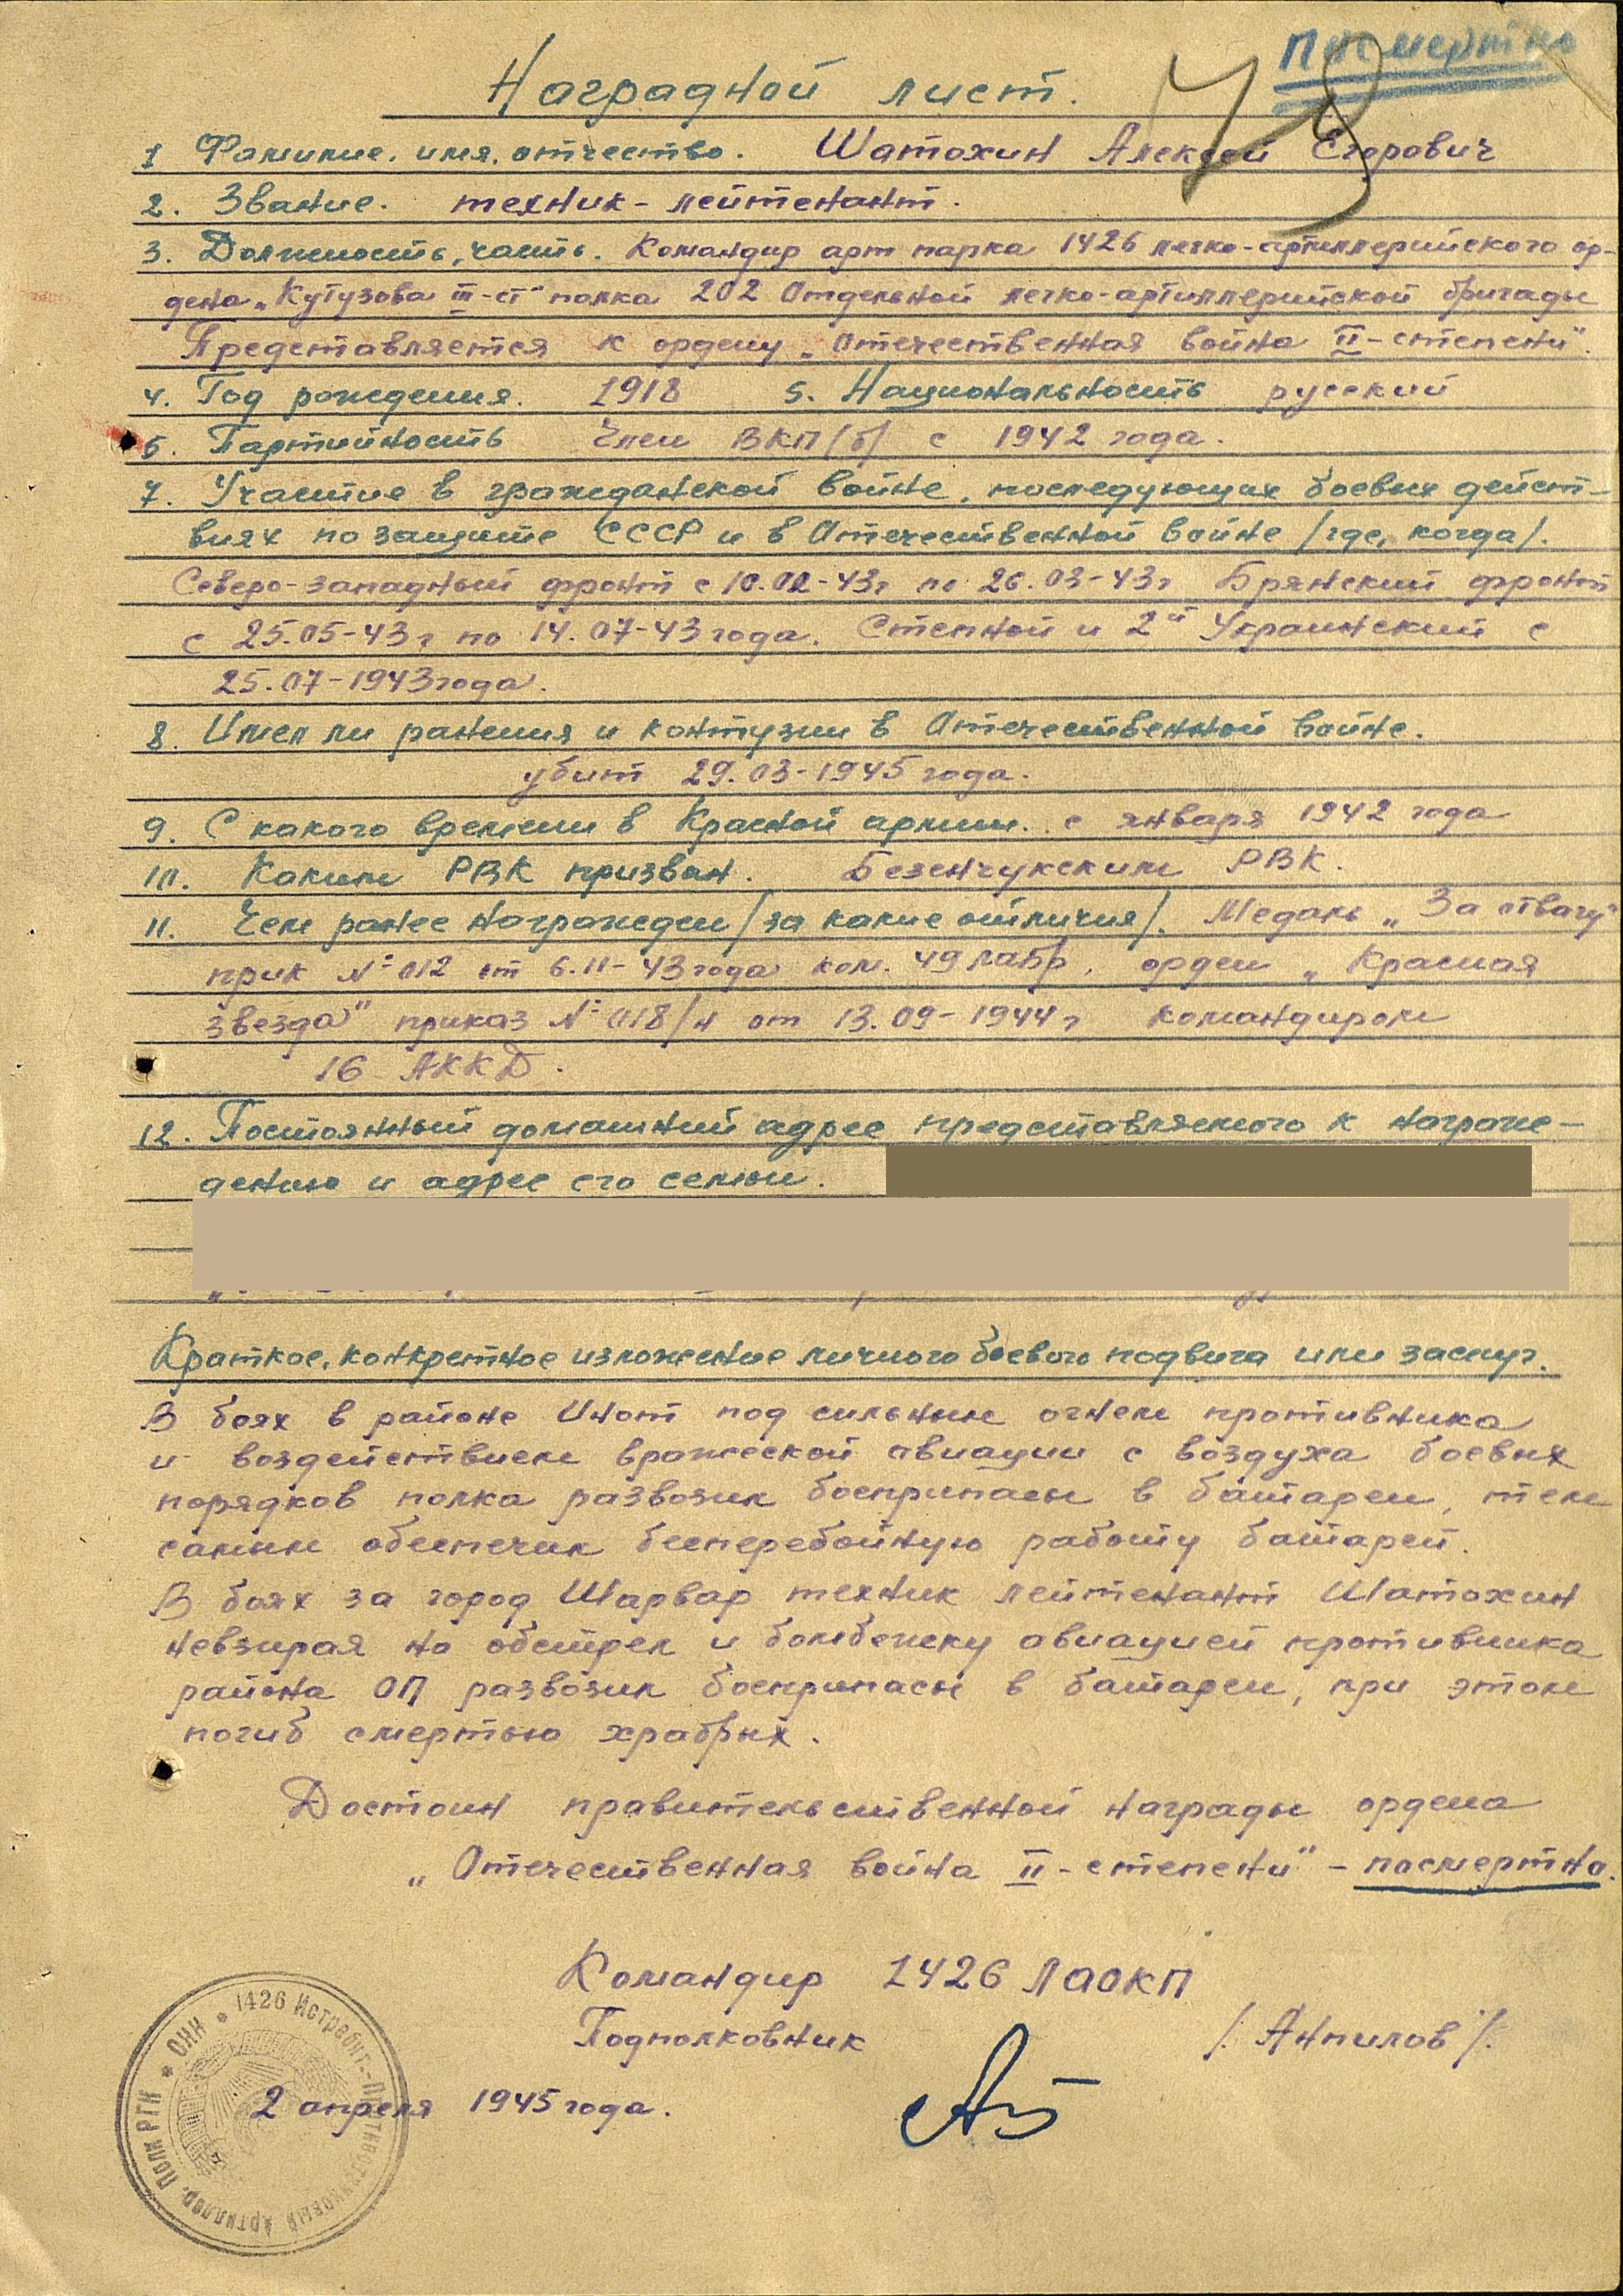 Посмертно
Наградной лист.
1 Фамилие. имя. отчество. Шатохин Алексей Егорович
2. Звание. техник-лейтенант.
3. Должность, часть. Командир арт парка 1426 легко-артиллерийского ор-
дена „Кутузова III-ст" полка 202 Отдельной легко-артиллерийской бригады
Представляется к ордену „Отечественная война II-степени".
4. Год рождения. 1918 5. Национальность русский
6. Партийность Член ВКП/б/ с 1942 года.
7. Участие в гражданской войне, последующих боевых дейст-
виях по защите СССР и в Отечественной войне /где, когда/.
Северо-западный фронт с 10.02-43г по 26.03-43г Брянский фронт
с 25.05-43г по 14.07-43 года. Степной и 2й Украинский с
25.07-1943 года.
8. Имел ли ранения и контузии в Отечественной войне.
убит 29.03-1945 года.
9. С какого времени в Красной армии. с января 1942 года
10. Каким РВК призван. Безенчукским РВК.
11. Чем ранее награжден /за какие отличия/. Медаль „За отвагу"
прик № 012 от 6.11-43 года ком. 49 лабр, орден „Красная
звезда" приказ № 018/н от 13.09-1944г командиром
16 АККД.
12. Постоянный домашний адрес представляемого к награж-
дению и адрес его семьи.
Краткое, конкретное изложение личного боевого подвига или заслуг.
В боях в районе Инот под сильным огнем противника
и воздействием вражеской авиации с воздуха боевых
порядков полка развозил боеприпасы в батареи, тем
самым обеспечил бесперебойную работу батарей.
В боях за город Шарвар техник лейтенант Шатохин
невзирая на обстрел и бомбежку авиацией противника
района ОП развозил боеприпасы в батареи, при этом
погиб смертью храбрых.
Достоин правительственной награды ордена
„Отечественная война II-степени" - посмертно.
Командир 1426 ЛАОКП
Подполковник /. Анпилов /.
2 апреля 1945 года.
1426 Истребит.-Противотанковый Артиллер. Полк РГК * ОНН *